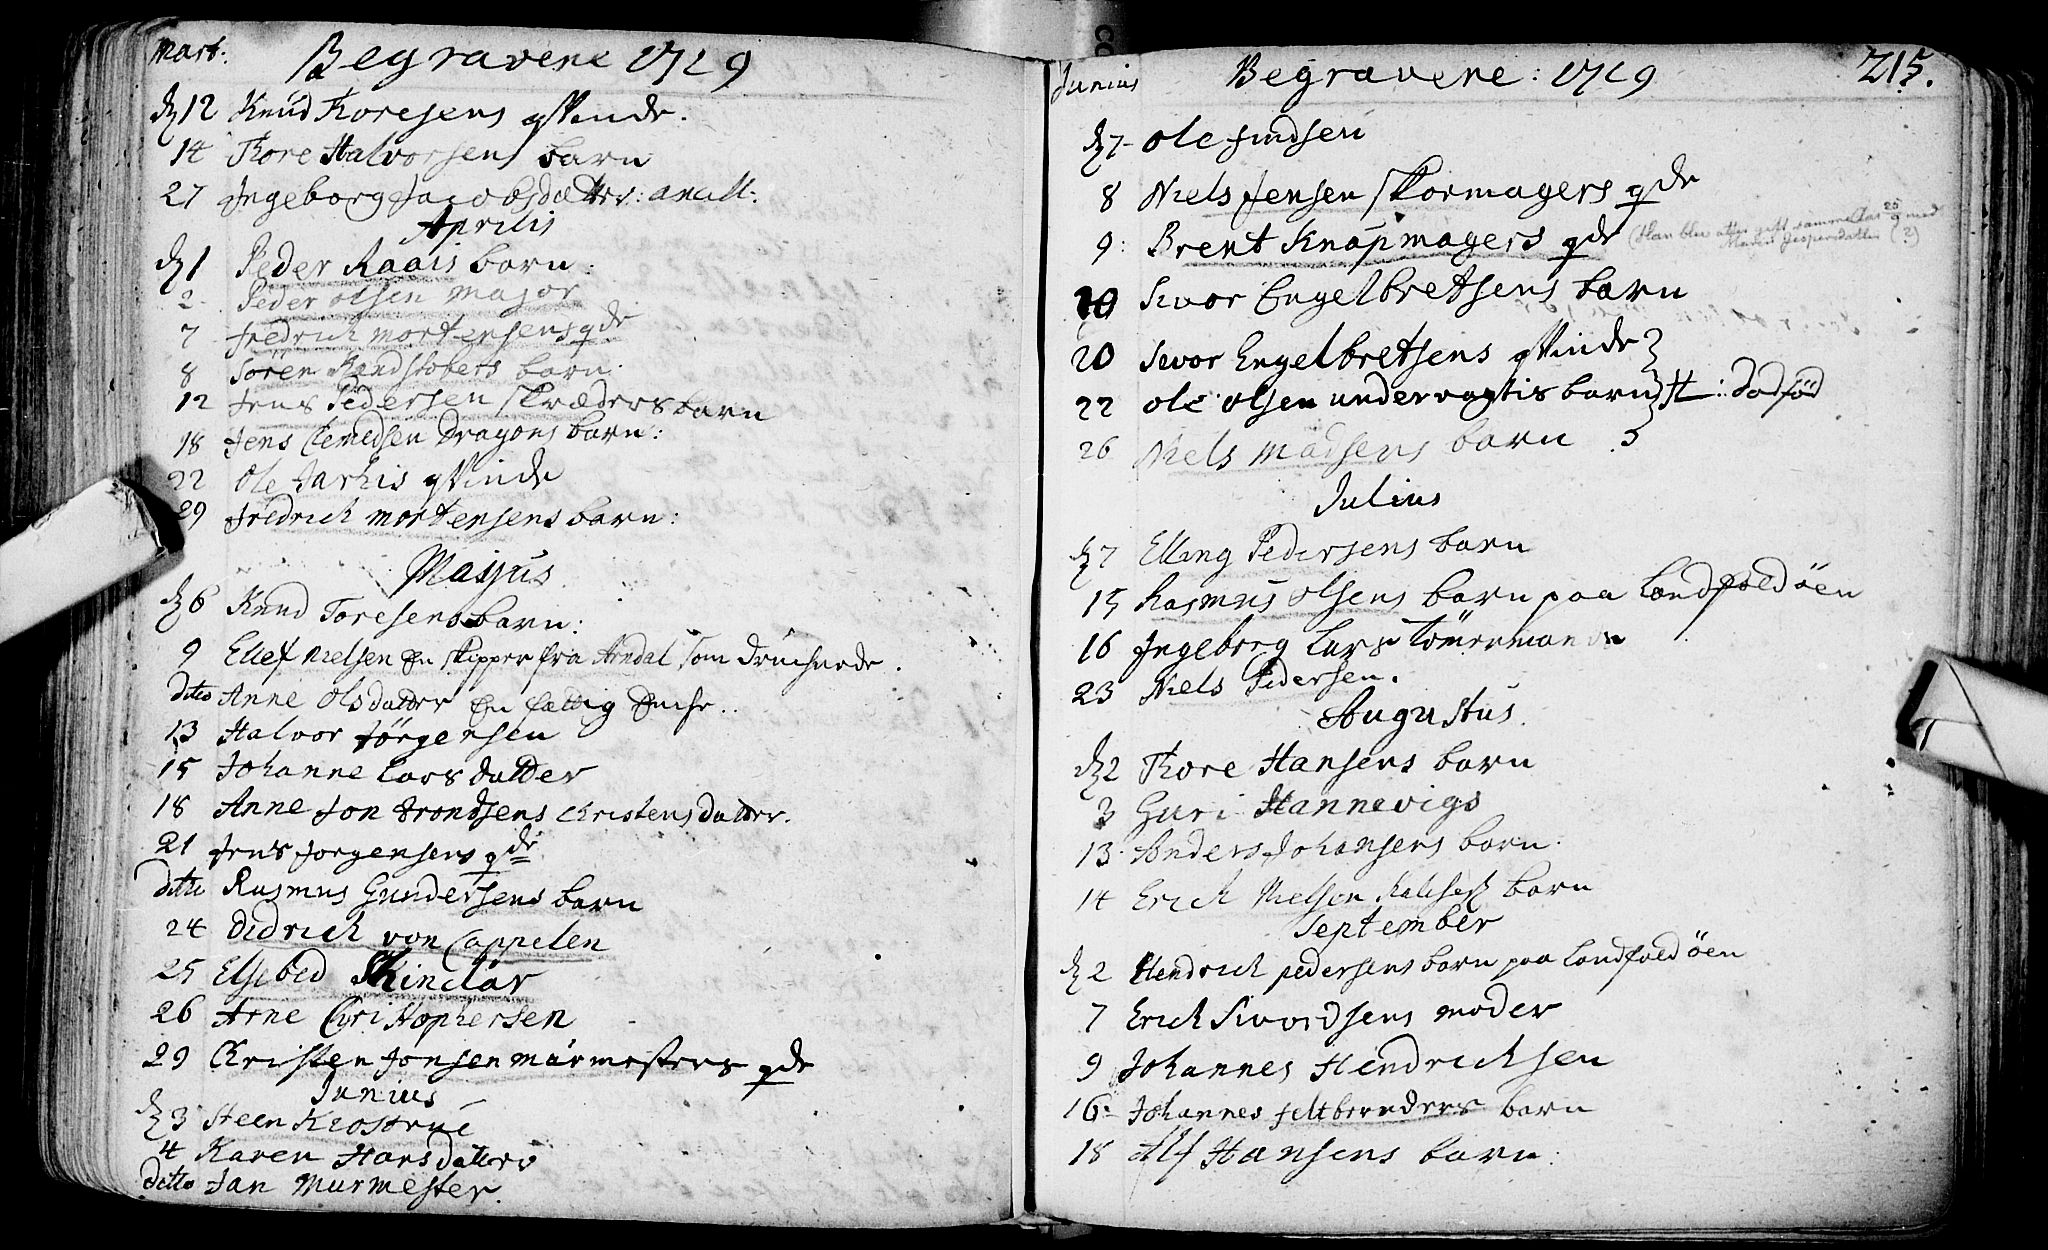 Mart: Begravene 1719
dg 12 Knud Thoresens qvinde.
14 Thore Halvorsens barn
27 Ingeborg Jacobsdatter: amme:
Aprilis
dg 1 Peder Raais barn:
2 Peder Olsen Major
7 Fredrich Mortensens qde
8 Sören barn.
12 Jens Pedersen Skræders barn
18 Jens Clemedsen Dragons barn:
22 Ole qvinde
29 Fredrich Mortensens barn:
Majus
dg 6 Knud Toresens barn:
9 Ellef Nielsen En Skipper fra Arndal som druchnede.
dito Anne Olsdatter En fattig Enche..
13 Halvor Jörgensen
15 Johanne Larsdatter
18 Anne Jon Trondsens Christensdatter.
21 Jens Jorgensens qde
ditto Rasmus Gundersens barn
24 Didrich von Cappelen
25 Elsebed Skindar
26 Arne Christophersen
29 Christen Jonsen Murmesters qde
Junius
dg 3 Steen Klostrue
4 Karen Hansdatter
ditto Jan Murmester.
Junius Begravene: 1719 215.
dg 7 Ole Findsen
8 Niels Jensen Skormagers qde
9: Brent Knapmagers qde (Han blev atter gift samme Aar 25/9 med Maren Jespersdatter (?)
10 Sivor Engelbretsens barn
20 Sivor Engelbretsens qvinde
22 Ole Olsen undervogtis barn H: dodfød
26 Niels Madsens barn
Julius
dg 7 Elling Pedersens barn
15 Rasmus Olsens barn paa Landfaldöen
16 Ingeborg Lars Tömermands
23 Niels Pedersen.
Augustus.
dg 2 Thore Hansens barn
3 Guri Hannevigs
13 Anders Johansens barn.
14 Erich Nielsen barn
September
dg 2 Hendrich pedersens barn paa Landfaldöen
7 Erich Sivordsens moder
9 Johannes Hendrichsen
16: Johannes feltbereders barn
18 Alf Hansens barn: